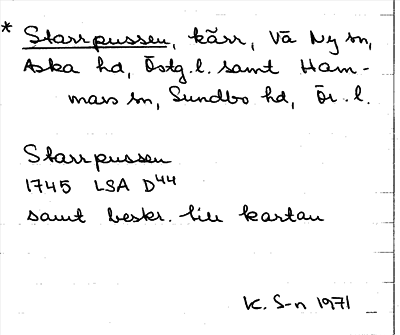 * Starrpussen, kärr, Vä Ny sn,
Aska hd, Östg.l. samt Ham-
mars sn, Sundbo hd, Ör. l.
Starrpussen
1745 LSA D44
samt beskr. till kartan
K. S-n 1971